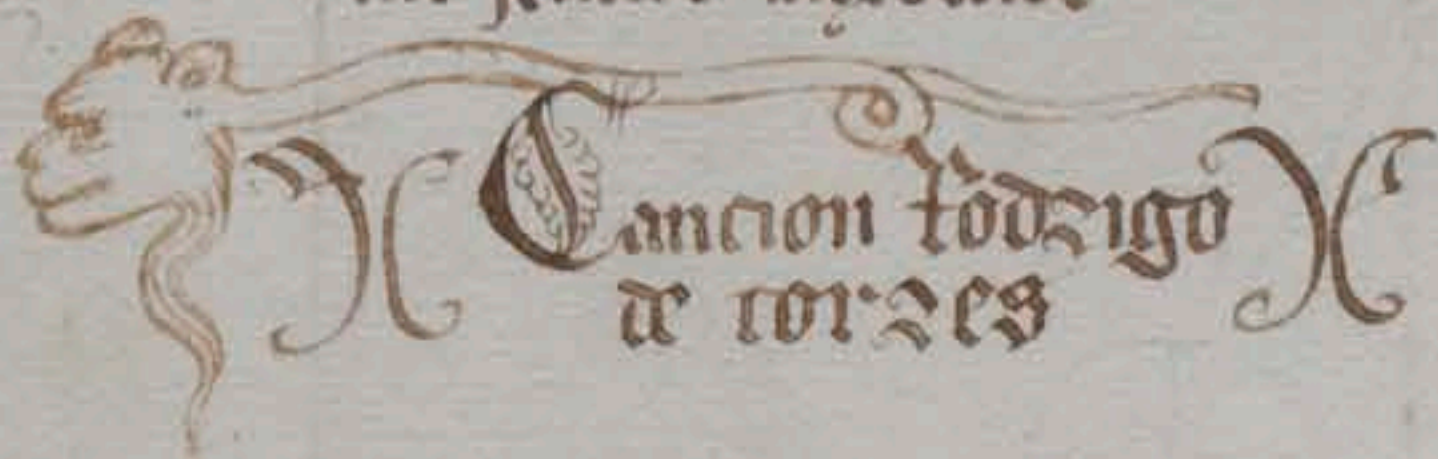 Cancion rodrigo
de torres